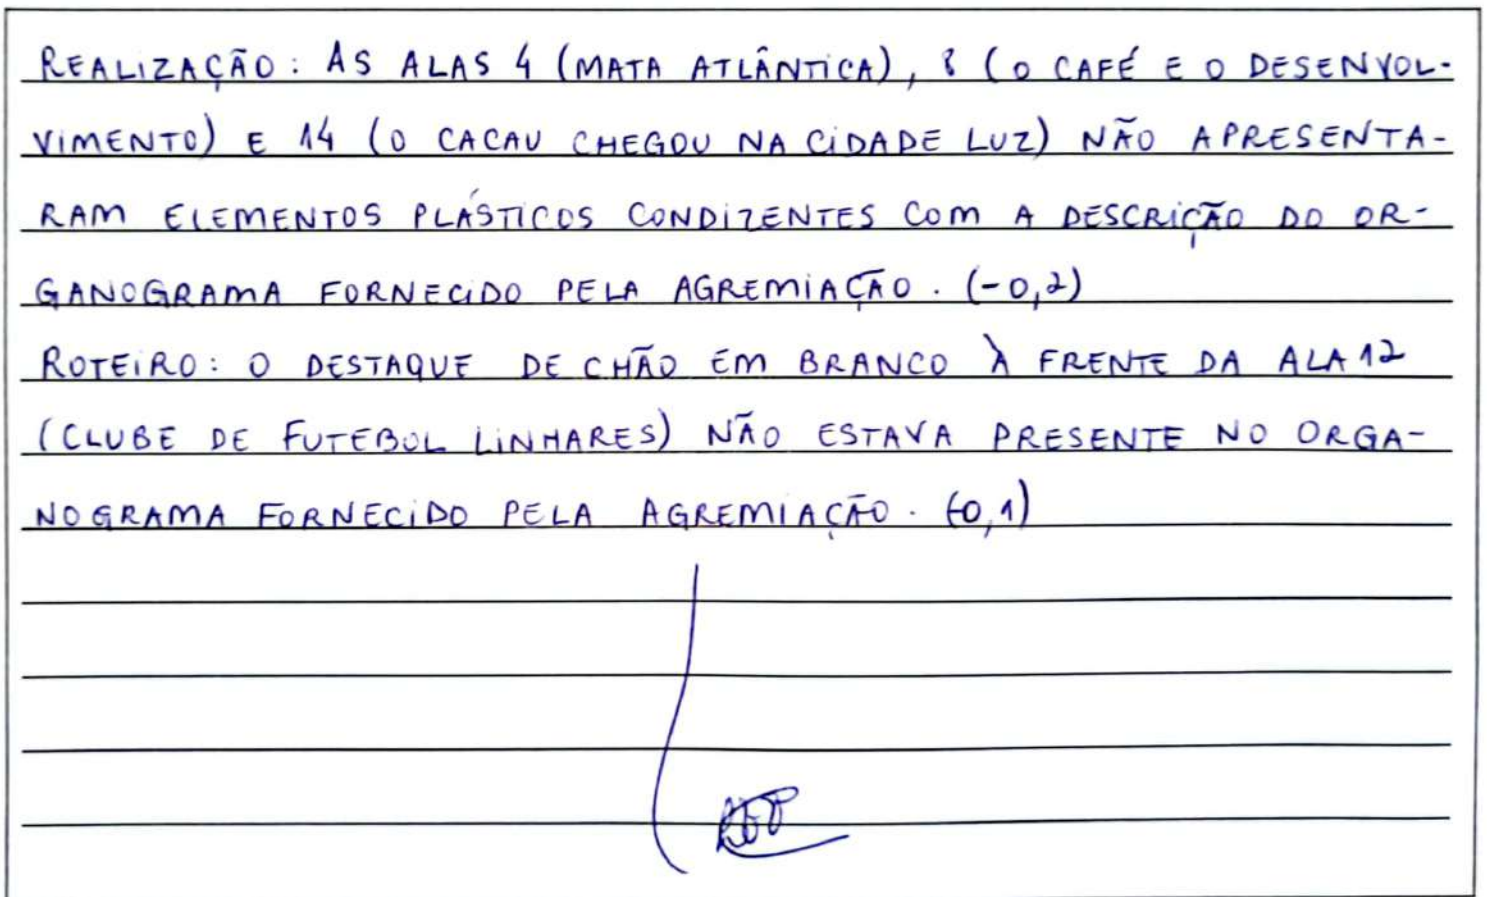 REALIZAÇÃO: AS ALAS 4 (MATA ATLÂNTICA), 8 (O CAFÉ E O DESENVOL-
VIMENTO) E 14 (O CACAU CHEGOU NA CIDADE LUZ) NÃO APRESENTA-
RAM ELEMENTOS PLÁSTICOS CONDIZENTES COM A DESCRIÇÃO DO OR-
GANOGRAMA FORNECIDO PELA AGREMIAÇÃO. (-0,2)
ROTEIRO: O DESTAQUE DE CHÃO EM BRANCO À FRENTE DA ALA 12
(CLUBE DE FUTEBOL LINHARES) NÃO ESTAVA PRESENTE NO ORGA-
NOGRAMA FORNECIDO PELA AGREMIAÇÃO. (-0,1)